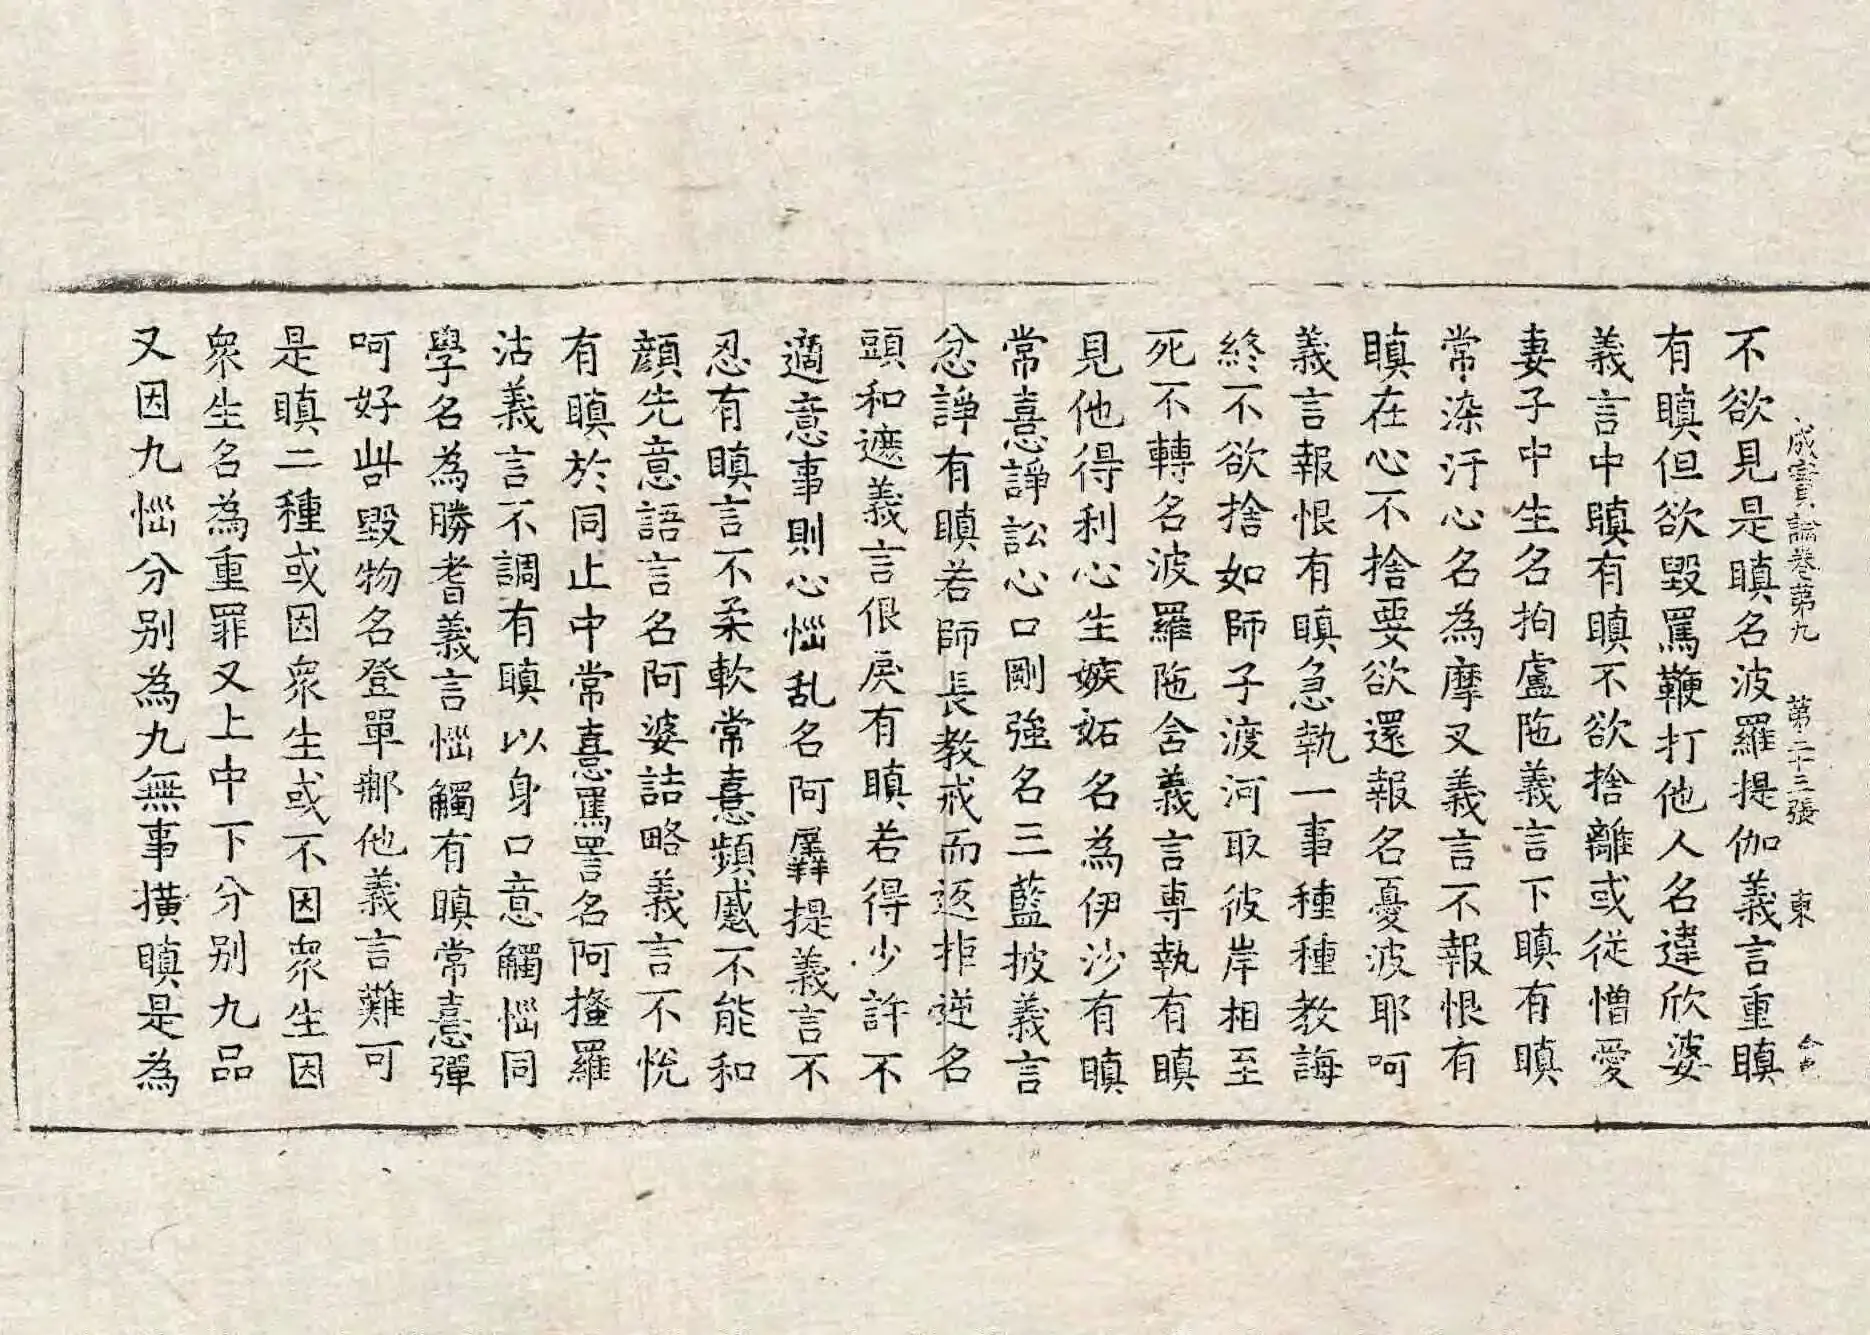 成實論卷第九 第二十三張 東
不欲見是瞋名波羅提伽義言重瞋
有瞋但欲毀罵鞭打他人名違欣婆
義言中瞋有瞋不欲捨離或從憎愛
妻子中生名拘盧陁義言下瞋有瞋
常染汙心名為摩叉義言不報恨有
瞋在心不捨要欲還報名憂波耶呵
義言報恨有瞋急執一事種種教誨
終不欲捨如師子渡河取彼岸相至
死不轉名波羅陁含義言專執有瞋
見他得利心生嫉妬名為伊沙有瞋
常憙諍訟心口剛強名三藍披義言
忿諍有瞋若師長教戒而返拒逆名
頭和遮義言佷戾有瞋若得少許不
適意事則心惱乱名阿羼提義言不
忍有瞋言不柔軟常憙頻蹙不能和
顏先意語言名阿婆詰略義言不悅
有瞋於同止中常憙罵詈名阿搔羅
沽義言不調有瞋以身口意觸惱同
學名為勝耆義言惱觸有瞋常憙彈
呵好呰毀物名登單那他義言難可
是瞋二種或因眾生或不因眾生因
眾生名為重罪又上中下分別九品
又因九惱分別為九無事橫瞋是為